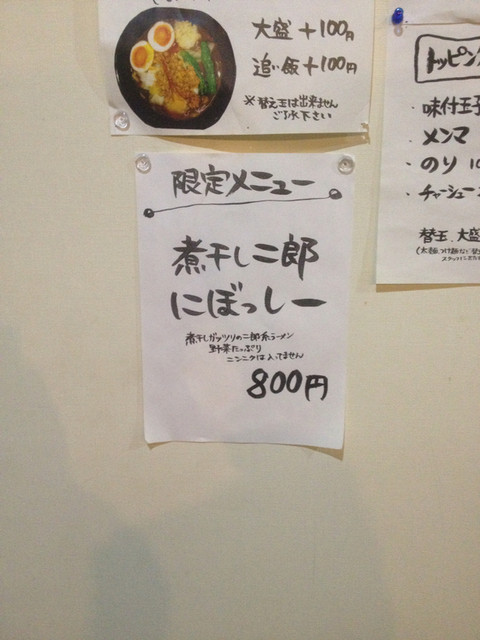 大盛 +100円
追い飯+100円
※替え玉は出来ません
ご了承下さい
限定メニュー
煮干し二郎
にぼっしー
煮干しガッツリの二郎系ラーメン
野菜たっぷり
ニンニクは入ってません
800円
トッピン
・味付玉子
・メンマ
・のり
・チャーシュー
替玉、大盛